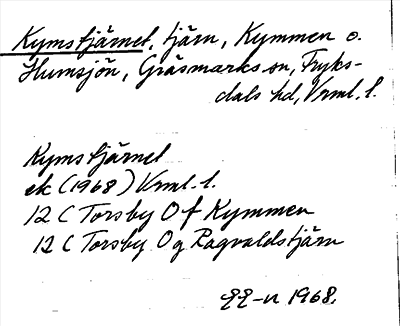 Kymstjärnet, tjärn, Kymmen o.
Humsjön, Gräsmarks sn, Fryks-
dals hd, Vrml. l.
Kymstjärnet
ek (1968) Vrml. l.
12 C Torsby O f Kymmen
12 C Torsby O g Ragvaldstjärn
1968.